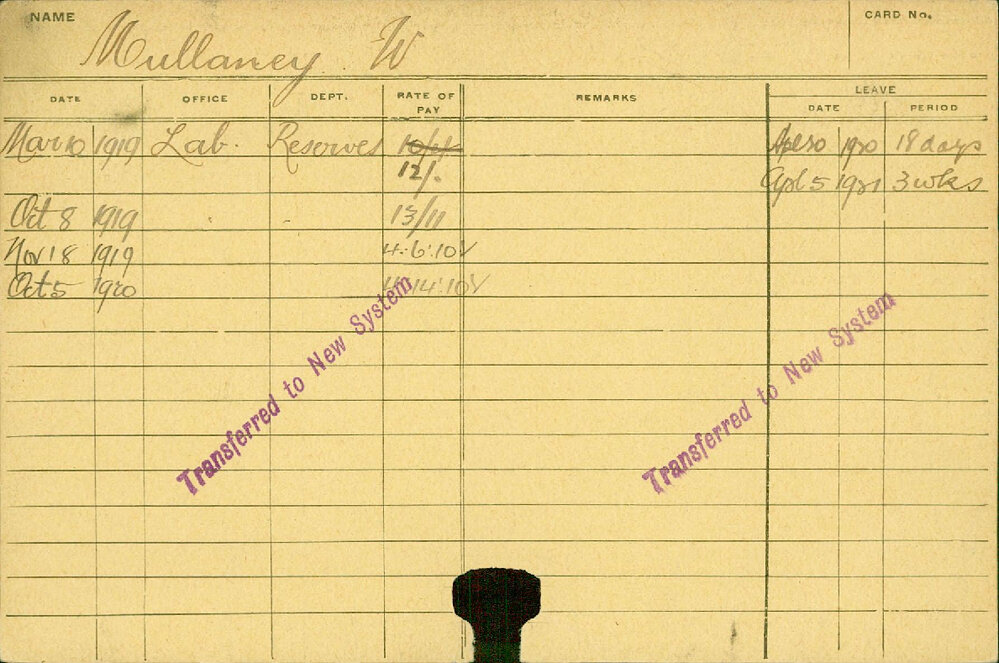 NAME
CARD No.
Mullaney W
DATE OFFICE DEPT. RATE OF PAY REMARKS LEAVE
DATE PERIOD
Mar 10 1919 Lab. Reserves 18 days
12/. Apl 5 1921 3 wks
Oct 8 1919 13/11
Nov 18 1919 4.6.10
Oct 5 1920 4.14.10
Transferred to New System
Transferred to New System